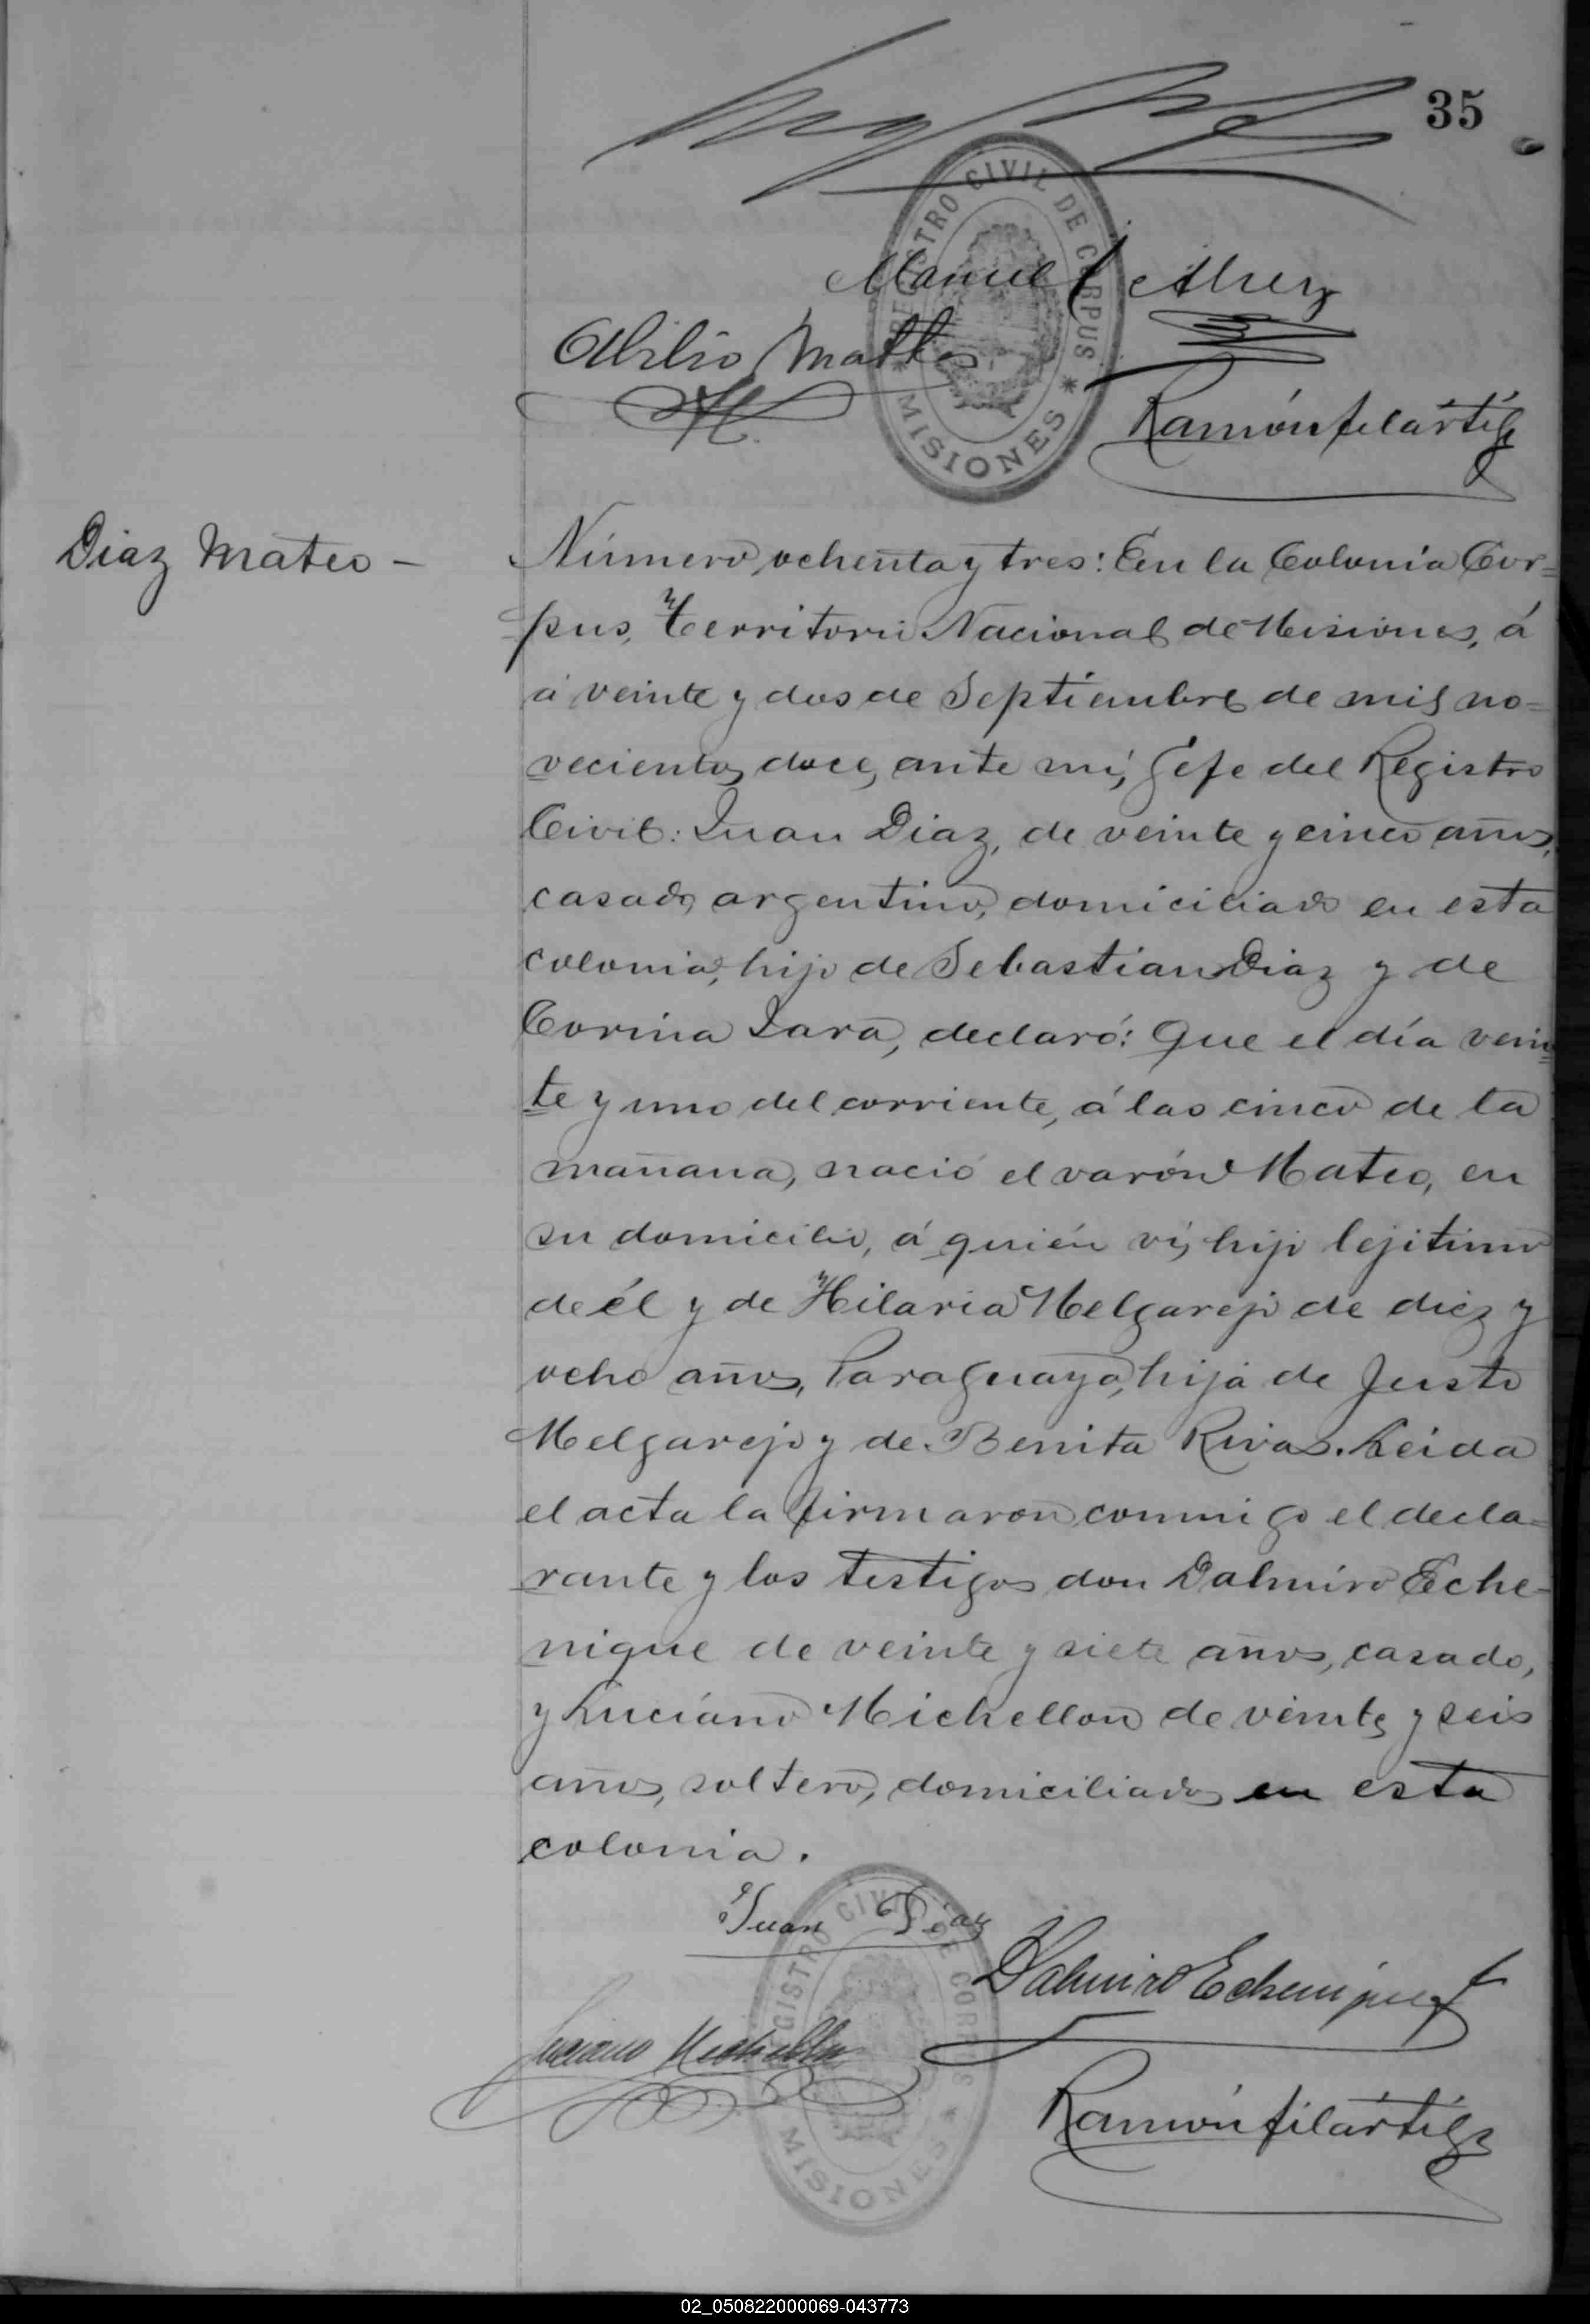 35
REGISTRO CIVIL DE CORPUS
* MISIONES *
Manuel
Abilio Mattos
Ramón filártiga
Diaz Mateo –
Número ochenta y tres: En la Colonia Cor=
pus, Territorio Nacional de Misiones, á
á veinte y dos de Septiembre de mil no=
vecientos doce, ante mí, Gefe del Registro
Civil: Juan Diaz, de veinte y cinco años,
casado, argentino, domiciliado en esta
colonia, hijo de Sebastian Diaz y de
Corina Lara, declaró: Que el día vein=
te y uno del corriente, á las cinco de la
mañana, nació el varón Mateo, en
su domicilio, á quién ví, hijo lejitimo
de él y de Hilaria Melgarejo de diez y
ocho años, Paraguaya, hija de Justo
Melgarejo y de Benita Rivas. Leida
el acta la firmaron conmigo el decla=
rante y los testigos don Dalmiro Eche-
nique de veinte y siete años, casado,
y Luciano Michellon de veinte y seis
años, soltero, domiciliados en esta
colonia.
Juan Diaz
Dalmiro Echenique
Luciano Michellon
REGISTRO CIVIL DE CORPUS
MISIONES *
Ramón filártiga
02_050822000069-043773